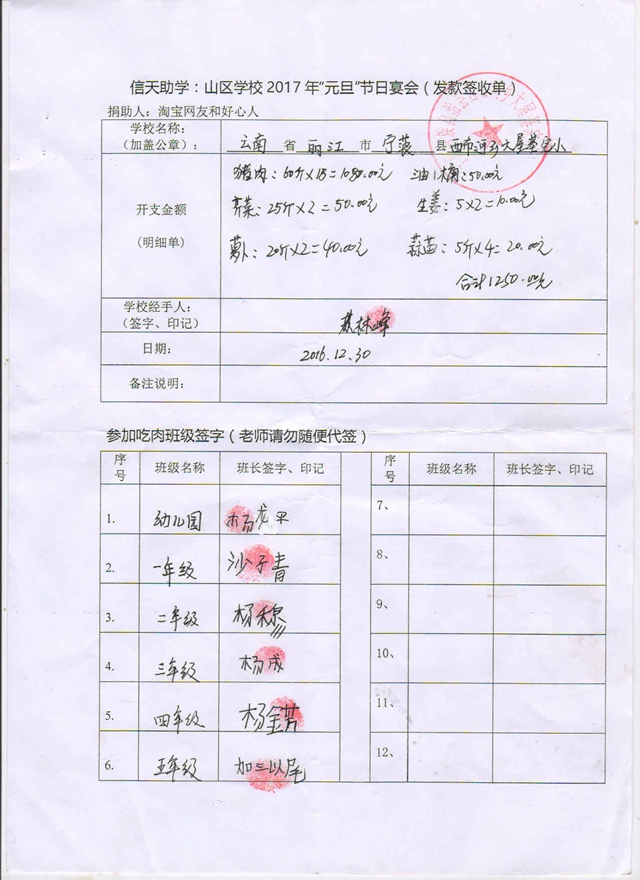 信天助学：山区学校2017年“元旦”节日宴会（发款签收单）
捐助人：淘宝网友和好心人
学校名称：
（加盖公章）：
云南 省 丽江 市 宁蒗 县 西布河乡大屋基完小
开支金额
（明细单）
猪肉：60斤×18=1080.00元 油1桶：50.00元
芹菜：25斤×2=50.00元 生姜：5×2=10.00元
萝卜：20斤×2=40.00元 蒜苗：5斤×4=20.00元
合计1250.00元
学校经手人：
（签字、印记）
林峰
日期： 2016.12.30
备注说明：
参加吃肉班级签字（老师请勿随便代签）
序号 班级名称 班长签字、印记 序号 班级名称 班长签字、印记
1. 幼儿园 杨龙平 7、
2. 一年级 沙子青 8、
3. 二年级 杨 9、
4. 三年级 杨成 10、
5. 四年级 杨金芳 11、
6. 五年级 加三以尾 12、